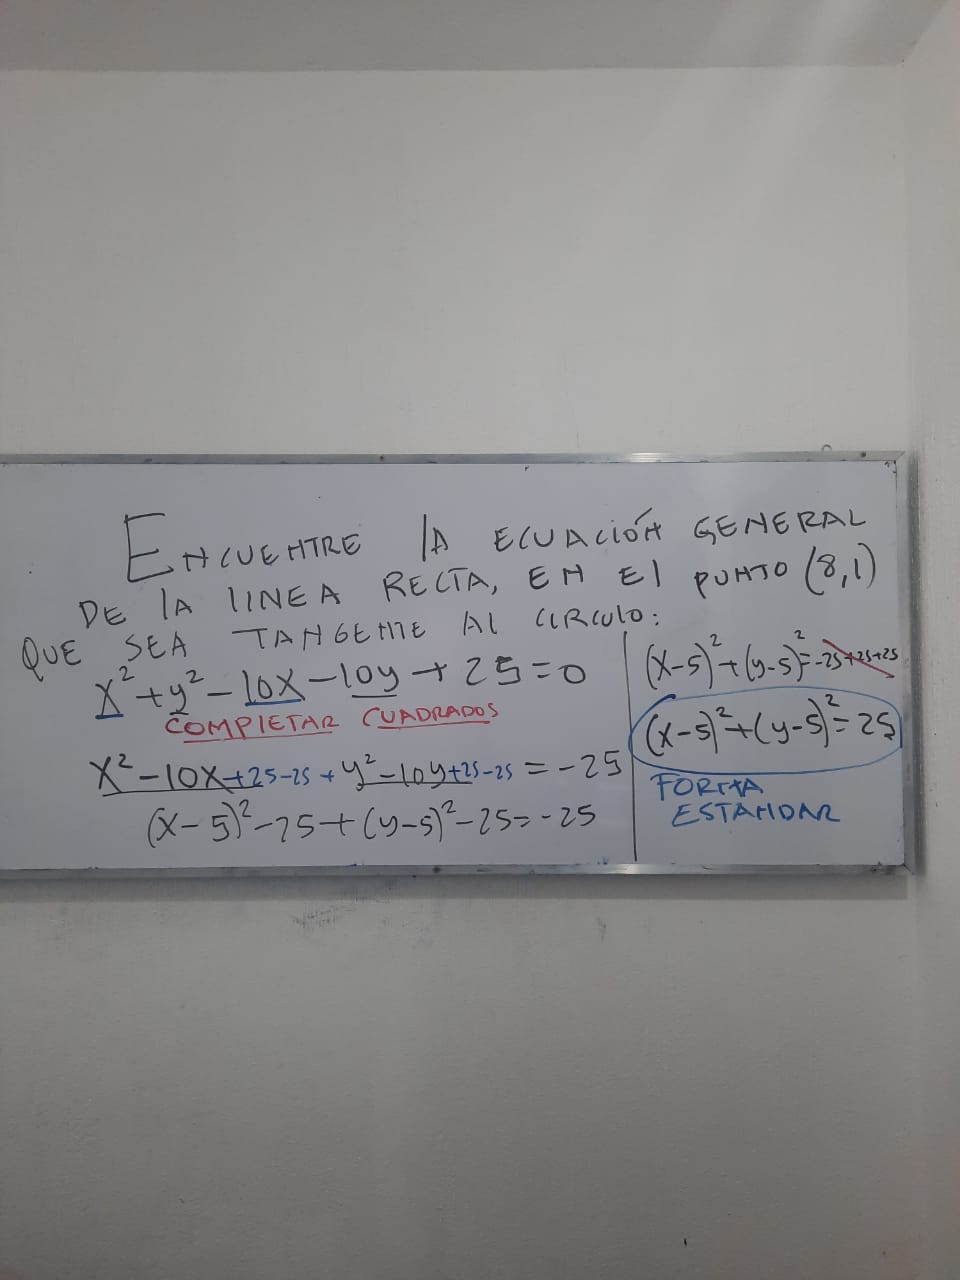 ENCUENTRE LA ECUACIÓN GENERAL
DE LA LINEA RECTA, EN EL PUNTO (8,1)
QUE SEA TANGENTE AL CIRCULO:
x²+y²-10x-10y+25=0
COMPLETAR CUADRADOS
x²-10x+25-25+y²-10y+25-25=-25
(x-5)²-25+(y-5)²-25=-25
(x-5)²+(y-5)²=-25+25+25
(x-5)²+(y-5)²=25
FORMA
ESTANDAR